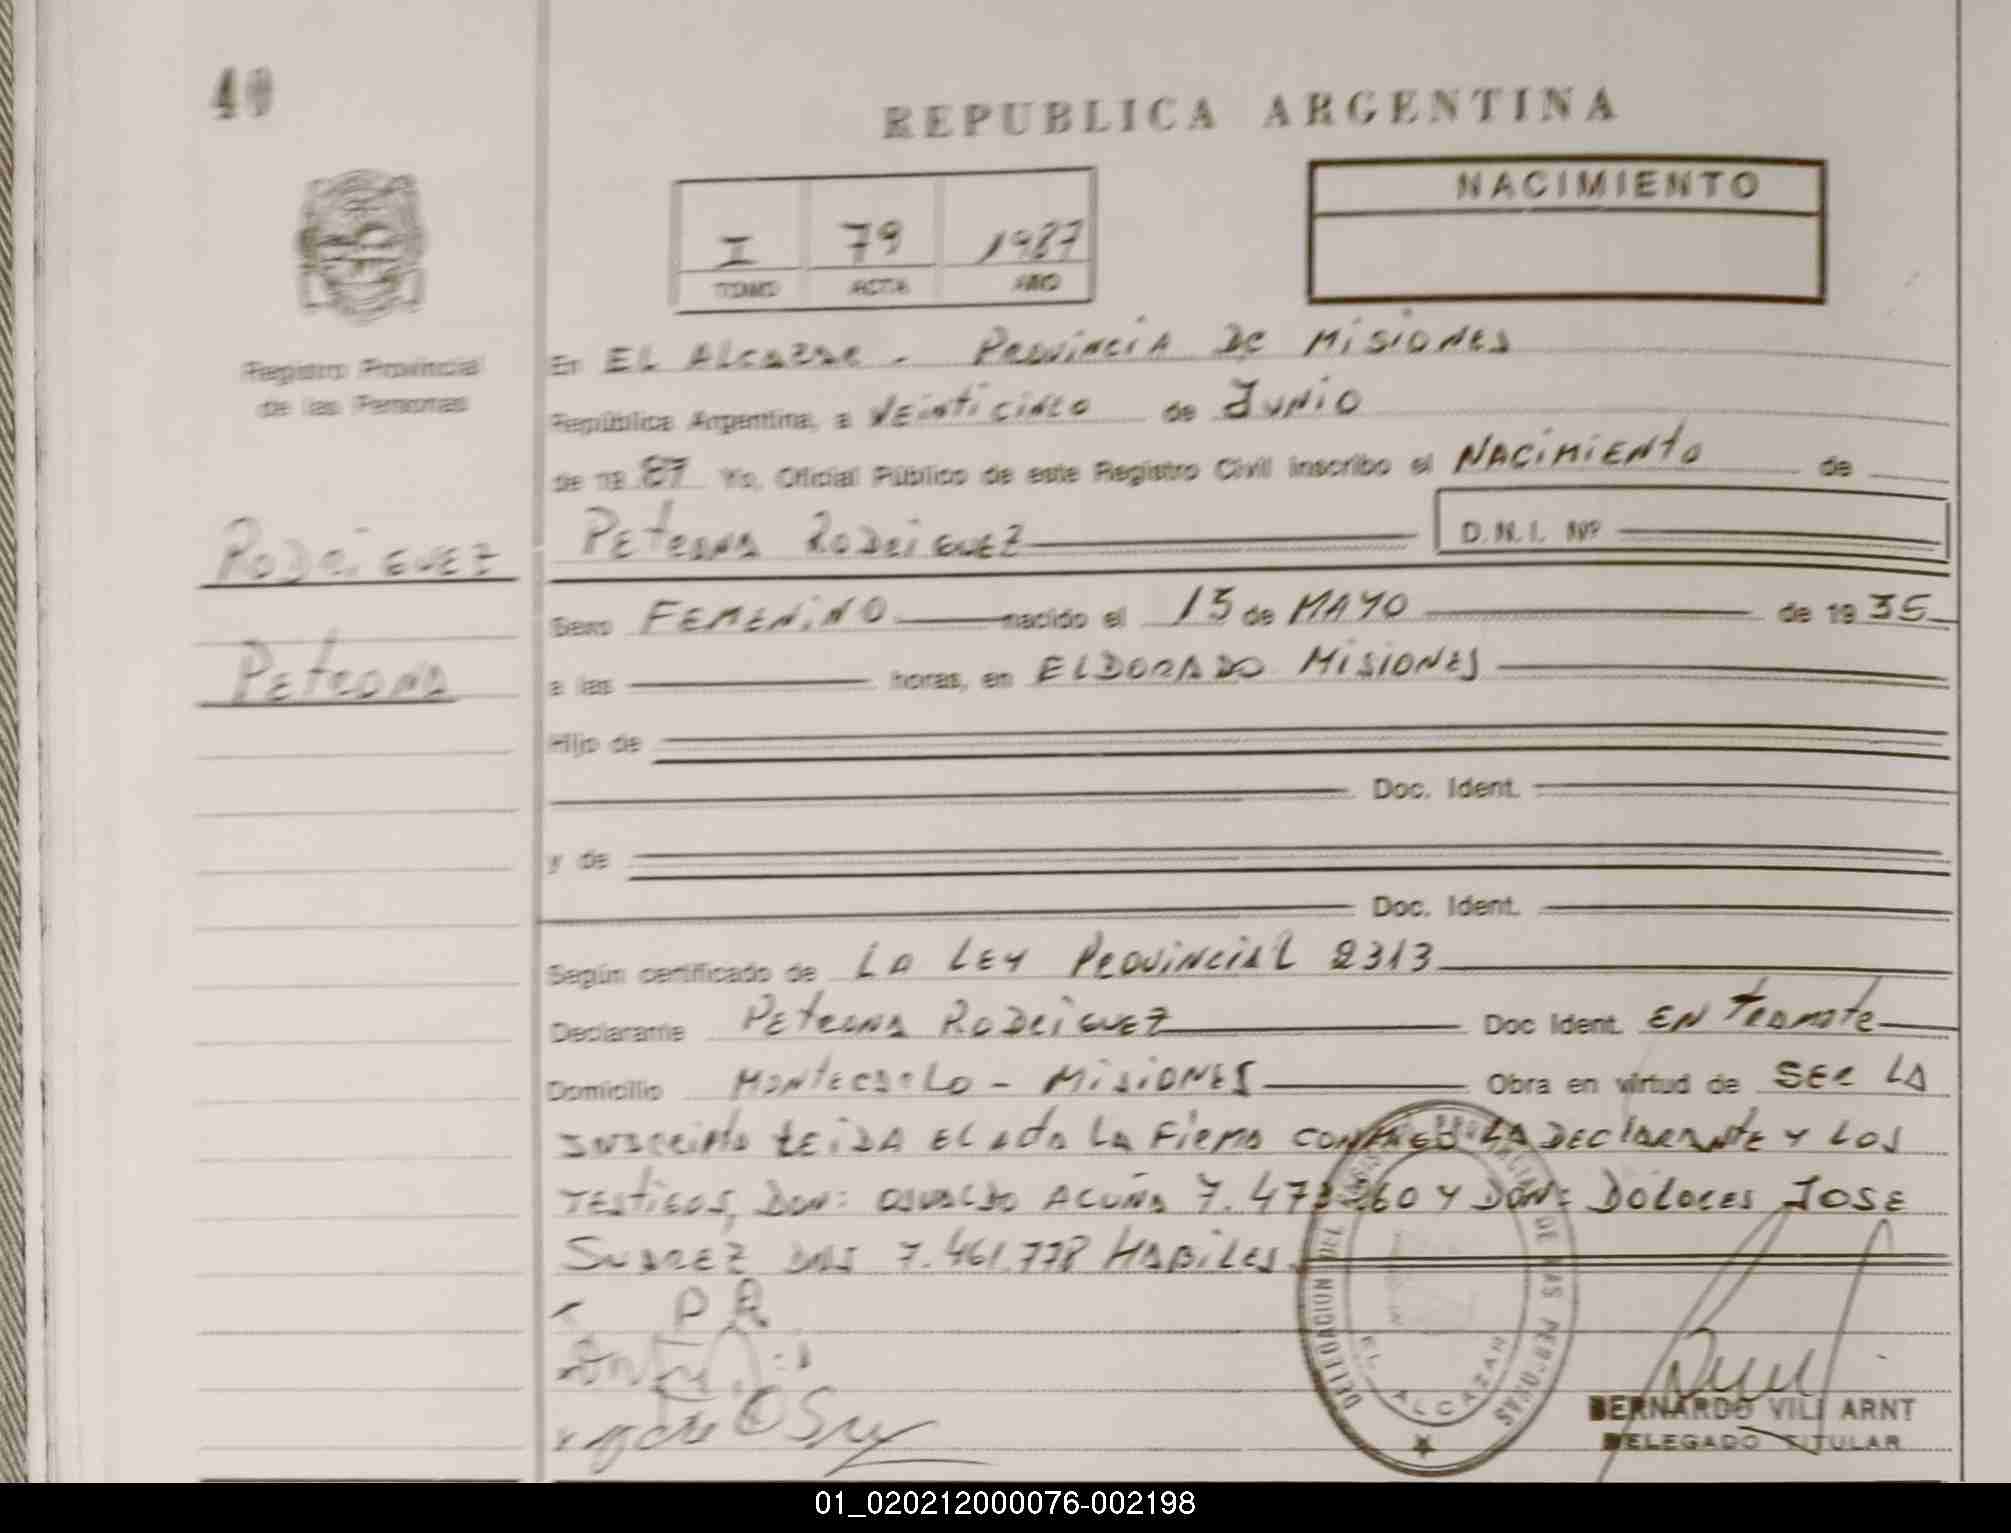 40
REPUBLICA ARGENTINA
NACIMIENTO
I 79 1987
TOMO ACTA AÑO
Registro Provincial
de las Personas
En EL ALCAZAR - PROVINCIA DE MISIONES
República Argentina, a VEINTICINCO de JUNIO
de 19 87 Yo, Oficial Público de este Registro Civil inscribo el NACIMIENTO de
RODRIGUEZ
PETRONA
PETRONA RODRIGUEZ D.N.I. Nº
Sexo FEMENINO nacido el 15 de MAYO de 19 35
a las horas, en ELDORADO MISIONES
Hijo de
Doc. Ident.
y de
Doc. Ident.
Según certificado de LA LEY PROVINCIAL 2313
Declarante PETRONA RODRIGUEZ Doc Ident. EN TRAMITE
Domicilio MONTECARLO - MISIONES Obra en virtud de SER LA
INSCRIPTA LEIDA EL ACTA LA FIRMA CONMIGO LA DECLARANTE Y LOS
TESTIGOS, DON: OSVALDO ACUÑA Y DON: DOLORES JOSE
SUAREZ 7.461.778 HABILES.
P R
DELEGACION DEL DE LAS PERSONAS
EL ALCAZAR
BERNARDO VILL ARNT
DELEGADO TITULAR
01_020212000076-002198